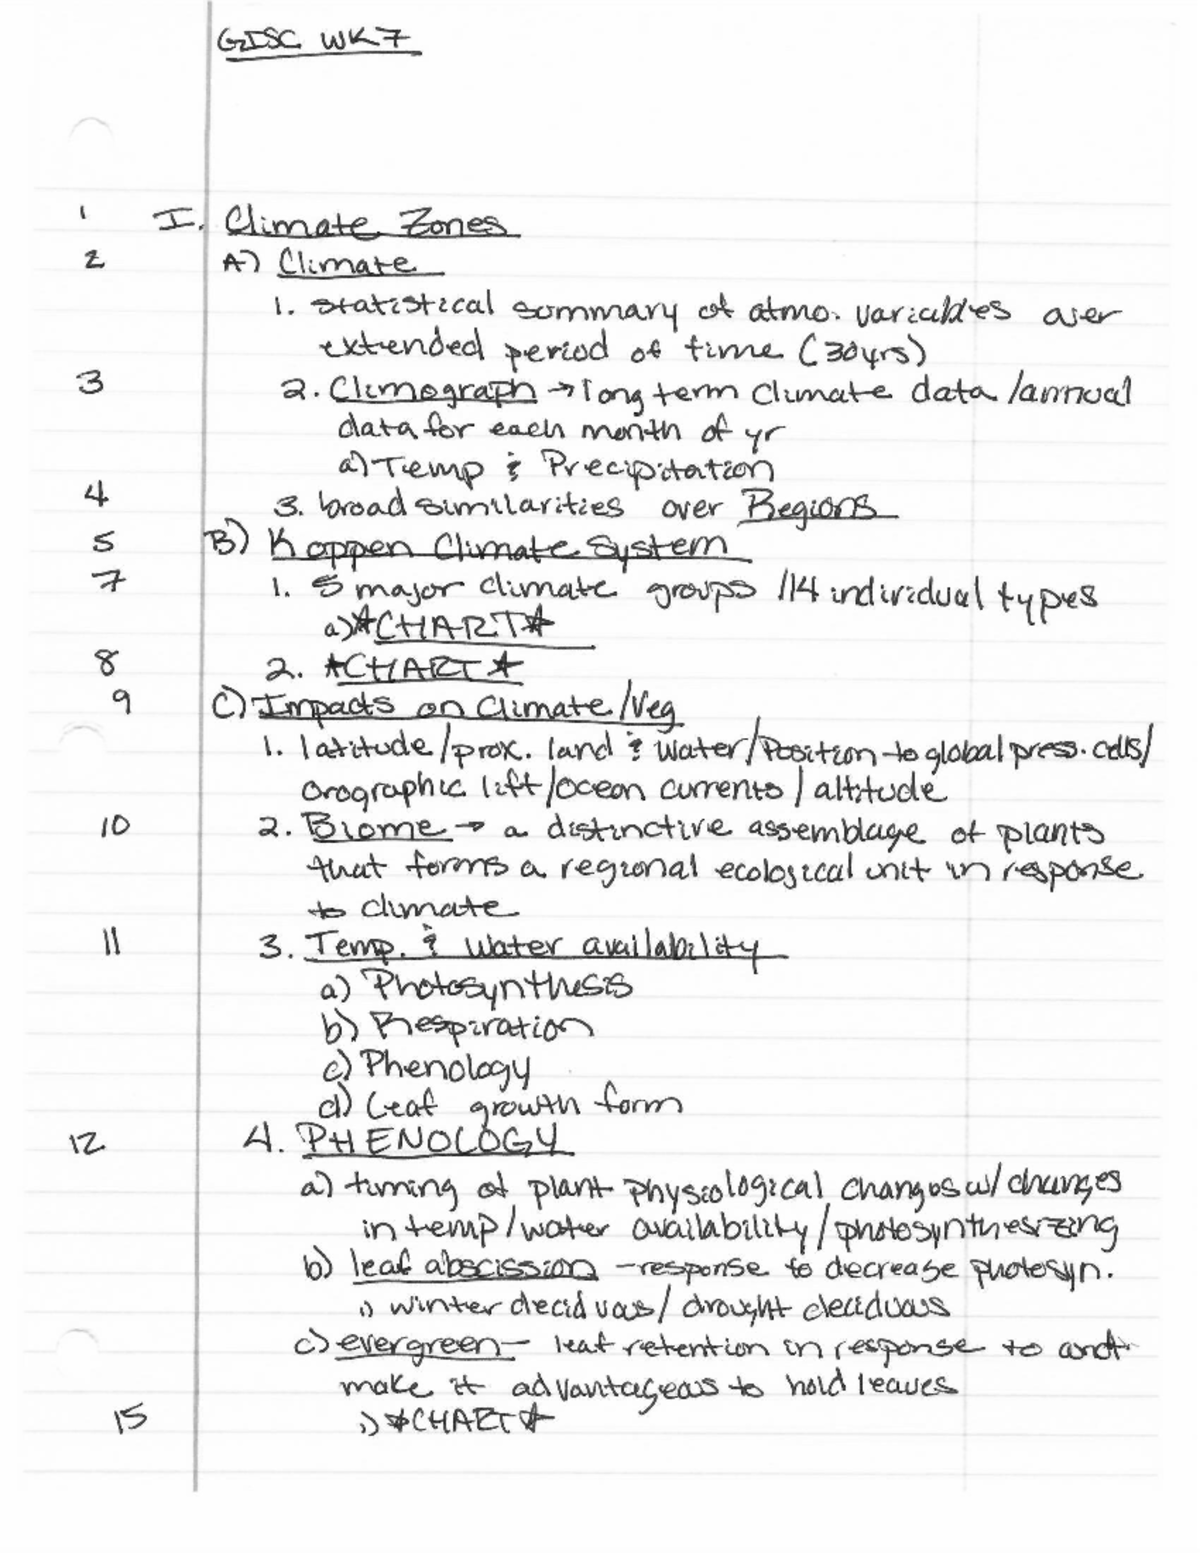 GISC WK7
1 I. Climate Zones
2 A) Climate
1. statistical summary of atmo. variables over
extended period of time (30yrs)
3 2. Climograph → long term climate data / annual
data for each month of yr
a) Temp & Precipitation
4 3. broad similarities over Regions
5 B) Koppen Climate System
7 1. 5 major climate groups /14 individual types
a) *CHART*
8 2. *CHART*
9 C) Impacts on Climate/Veg
1. latitude/prox. land & water/Position to global press. cells/
orographic lift/ocean currents/altitude
10 2. Biome → a distinctive assemblage of plants
that forms a regional ecological unit in response
to climate
11 3. Temp. & water availability
a) Photosynthesis
b) Respiration
c) Phenology
d) Leaf growth form
12 4. PHENOLOGY
a) timing of plant physiological changes w/ changes
in temp/water availability/photosynthesizing
b) leaf abscission - response to decrease photosyn.
i) winter deciduous/drought deciduous
c) evergreen - leaf retention in response to
make it advantageous to hold leaves
15 i) *CHART*